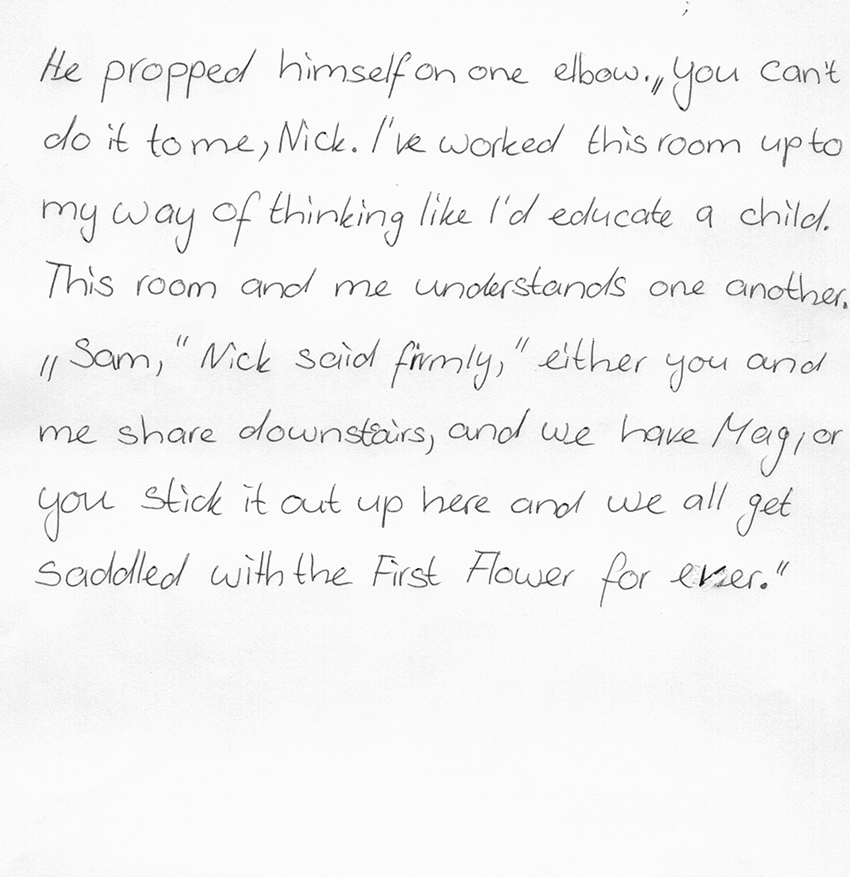 He propped himself on one elbow. „You can't
do it to me, Nick. I've worked this room up to
my way of thinking like I'd educate a child.
This room and me understands one another.
„Sam," Nick said firmly," either you and
me share downstairs, and we have Mag, or
you stick it out up here and we all get
saddled with the First Flower for ever."